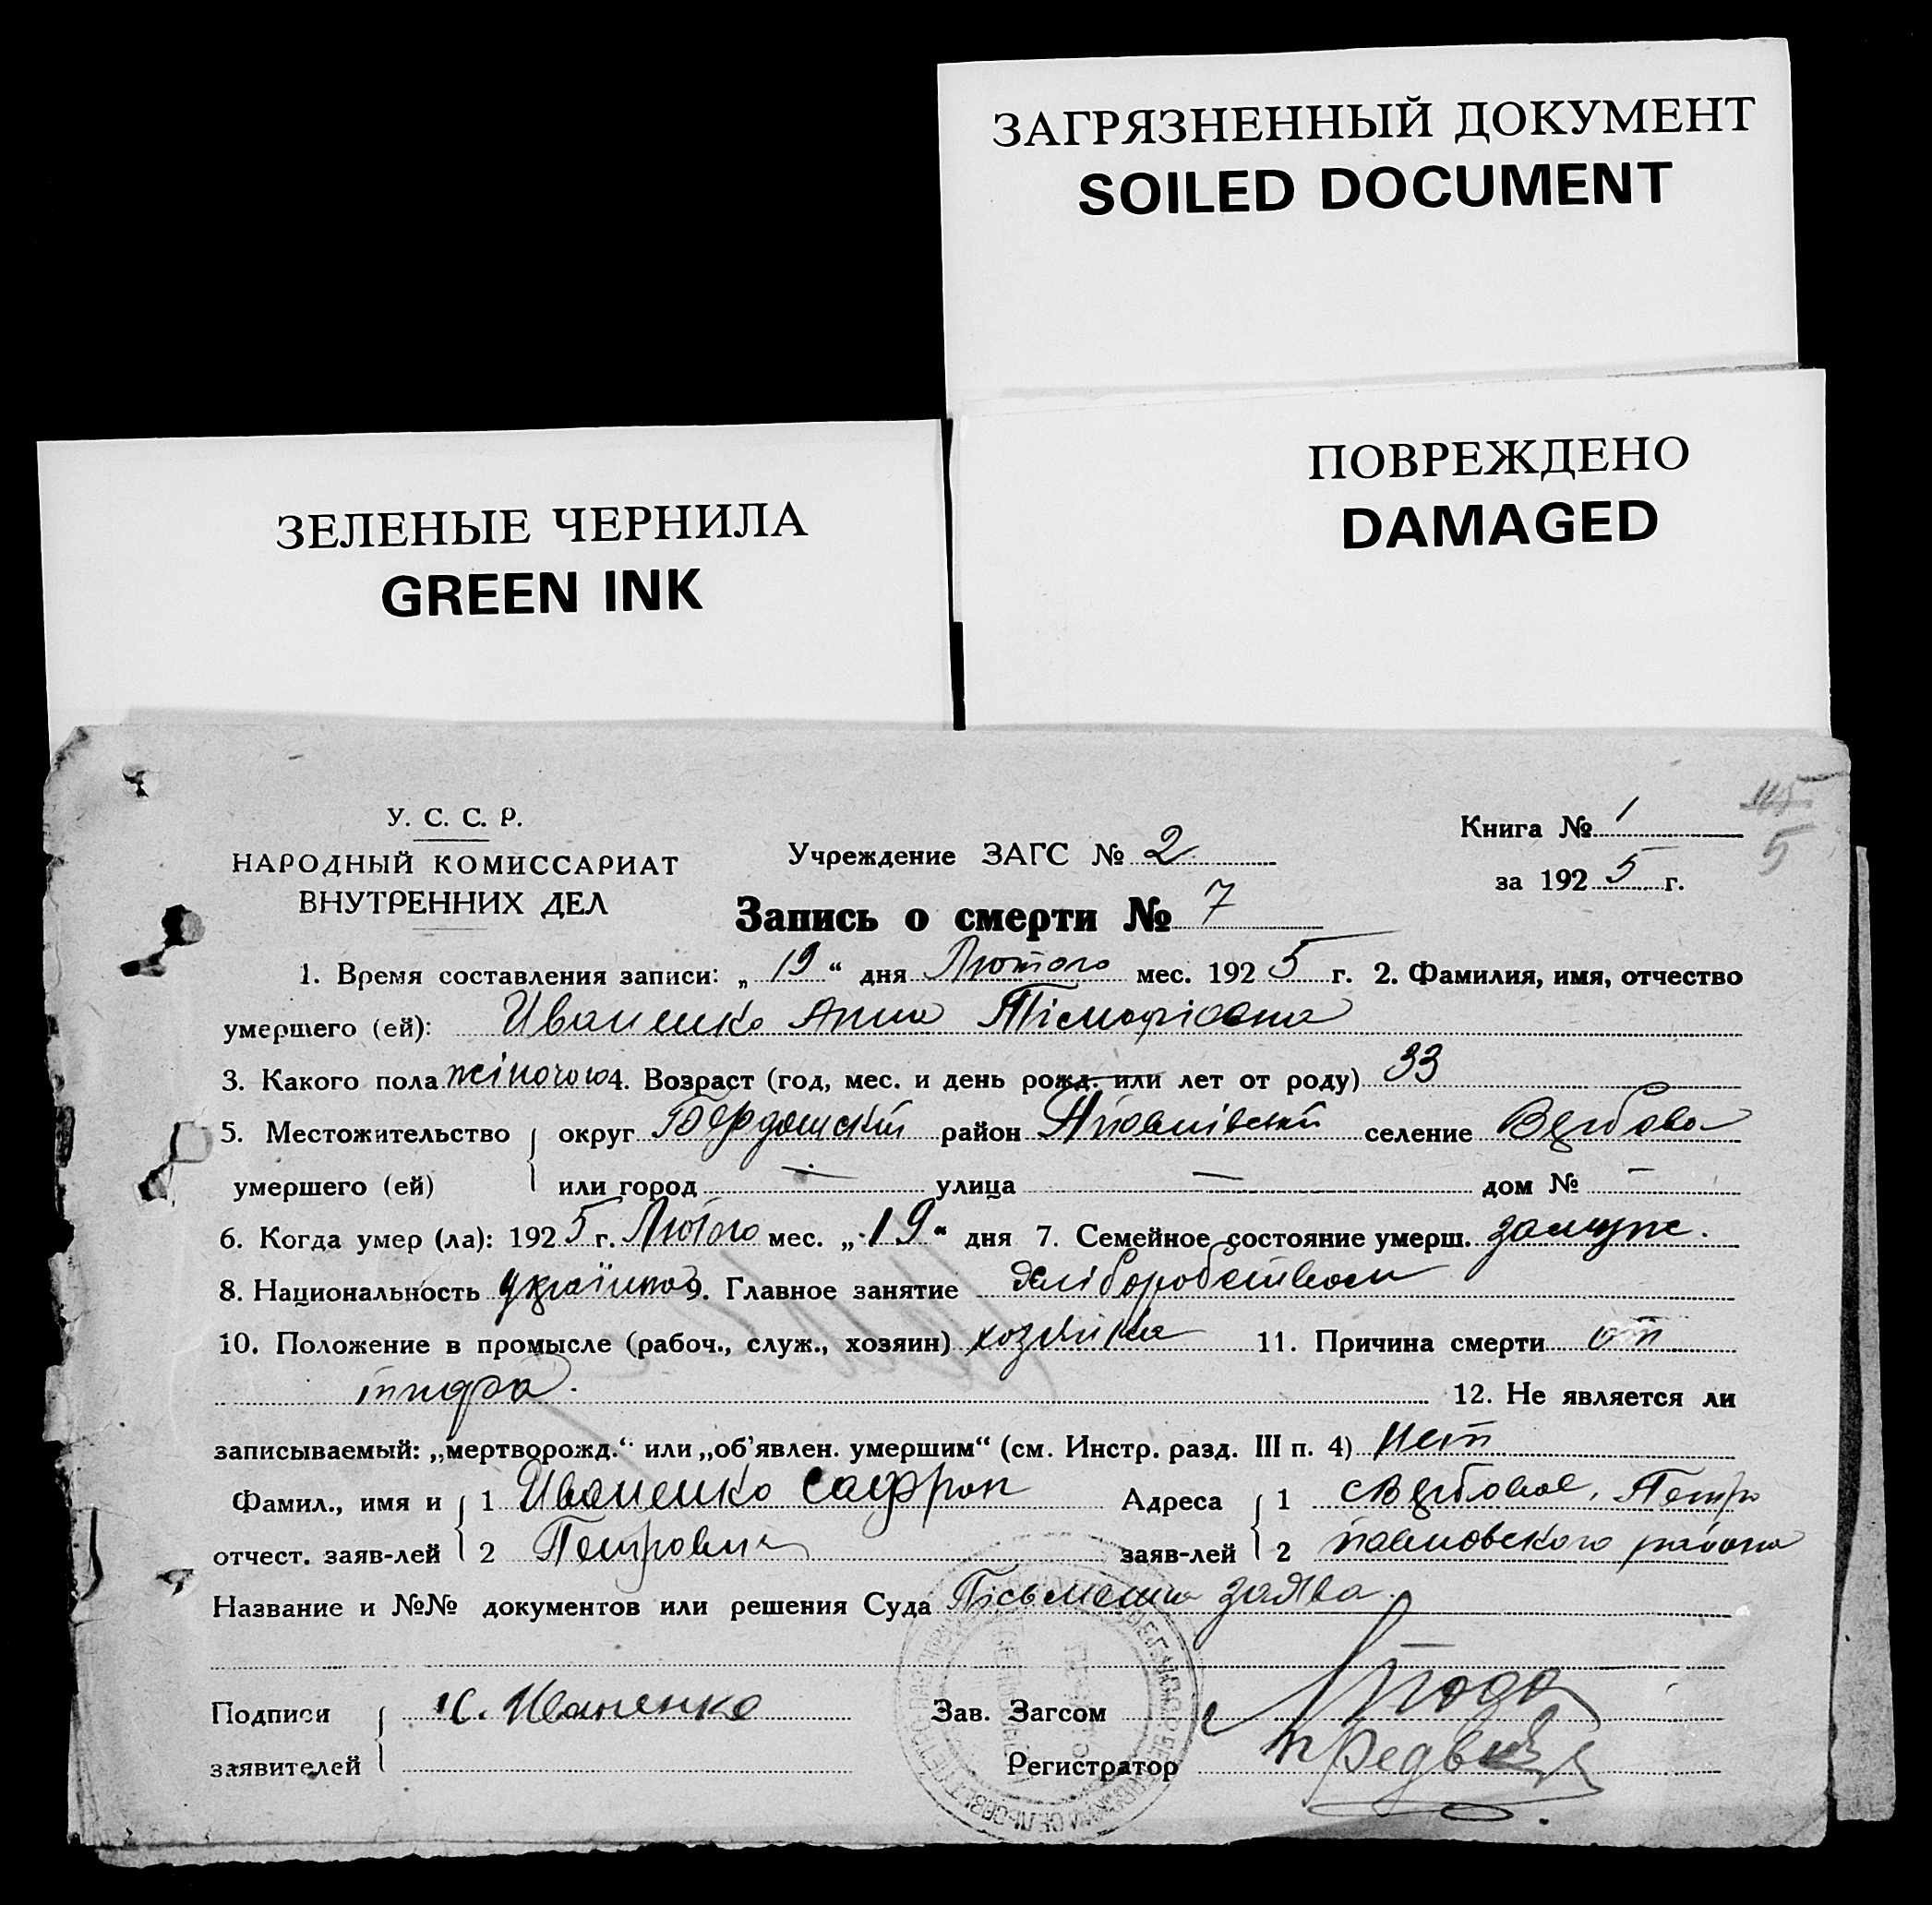 ЗАГРЯЗНЕННЫЙ ДОКУМЕНТ
SOILED DOCUMENT
ПОВРЕЖДЕНО
DAMAGED
ЗЕЛЕНЫЕ ЧЕРНИЛА
GREEN INK
У. С. С. Р.
НАРОДНЫЙ КОМИССАРИАТ
ВНУТРЕННИХ ДЕЛ
Учреждение ЗАГС № 2
Книга № 1
за 1925 г.
5
Запись о смерти № 7
1. Время составления записи: „19“ дня Лютого мес. 1925 г. 2. Фамилия, имя, отчество
умершего (ей): Иваненко Анна Тімофіовна
3. Какого пола жіного 4. Возраст (год, мес. и день рожд. или лет от роду) 33
5. Местожительство округ Бердянский район селение Вербова
умершего (ей) или город — улица — дом № —
6. Когда умер (ла): 1925 г. Лютого мес. „19“ дня 7. Семейное состояние умерш. замуже.
8. Национальность українка 9. Главное занятие хліборобством
10. Положение в промысле (рабоч., служ., хозяин) хозяйка 11. Причина смерти от
тифа. 12. Не является ли
записываемый: „мертворожд.“ или „об’явлен. умершим“ (см. Инстр. разд. III п. 4) Нет
Фамил., имя и 1 Иваненко Сафрон Адреса 1 с Вербовое, Петро
отчест. заяв-лей 2 Петрович заяв-лей 2 павловского района
Название и №№ документов или решения Суда Пісьменна заява.
Подписи Иваненко Зав. Загсом
заявителей Регистратор